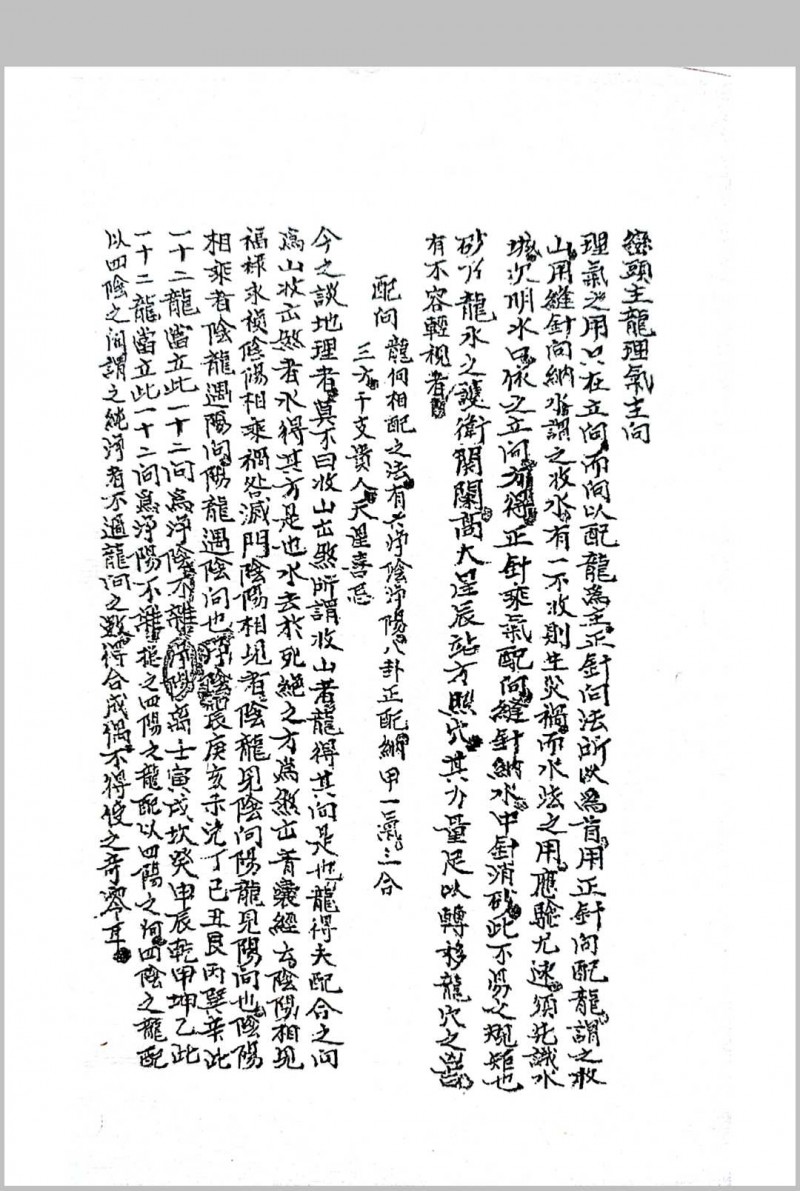 巒頭主龍理氣主向
理氣之用只在立向而向以配龍為主正針向法所以為首用正針向配龍謂之收
山用縫針向納水謂之收水有一不收則生災禍而水法之用應驗尤速須先識水
城次明水口依之立向方得正針乘氣配向縫針納水中針消砂此不易之規矩也
砂以龍水之護衛關闌高大星辰站方照穴其力量足以轉移龍穴之
有不容輕視者
配向 龍向相配之法有六淨陰淨陽八卦正配納甲一氣三合
三方干支貴人天星喜忌
今之談地理者莫不曰收山出煞所謂收山者龍得其向是也龍得夫配合之向
為山收出煞者水得其方是也水去於死絕之方為煞出青囊經云陰陽相見
福祿永禎陰陽相乘禍咎滅門陰陽相見者陰龍見陰向陽龍見陽向也陰陽
相乘者陰龍遇陽向陽龍遇陰向也淨陰震庚亥未兌丁巳丑艮丙巽辛此
一十二龍當立此一十二向為淨陰不雜淨陽离壬寅戌坎癸申辰乾甲坤乙此
一十二龍當立此一十二向為淨陽不雜槌之四陽之龍配以四陽之向四陰之龍配
以四陰之向謂之純淨者不過龍向之數得合成偶不得使之奇零耳